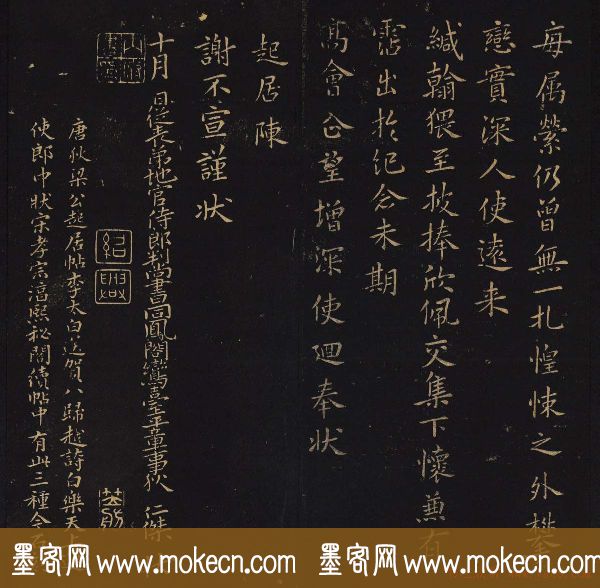 每属縈仍曾無一札惶悚之外攀
戀實深人使遠来
緘翰猥至披捧欣佩交集下懷兼有
霑出於紀念未期
髙會企望增深使廻奉状
起居陳
謝不宣謹状
十月 日從表弟地官侍郎判尚書同鳳閣鸞臺平章事狄 仁傑
唐狄梁公起居帖李太白送賀八歸越詩白樂天
使郎中狀宋孝宗淳熙秘閣續帖中有此三種今
紹興
墨客网 www.mokecn.com 墨客网 www.mokecn.com